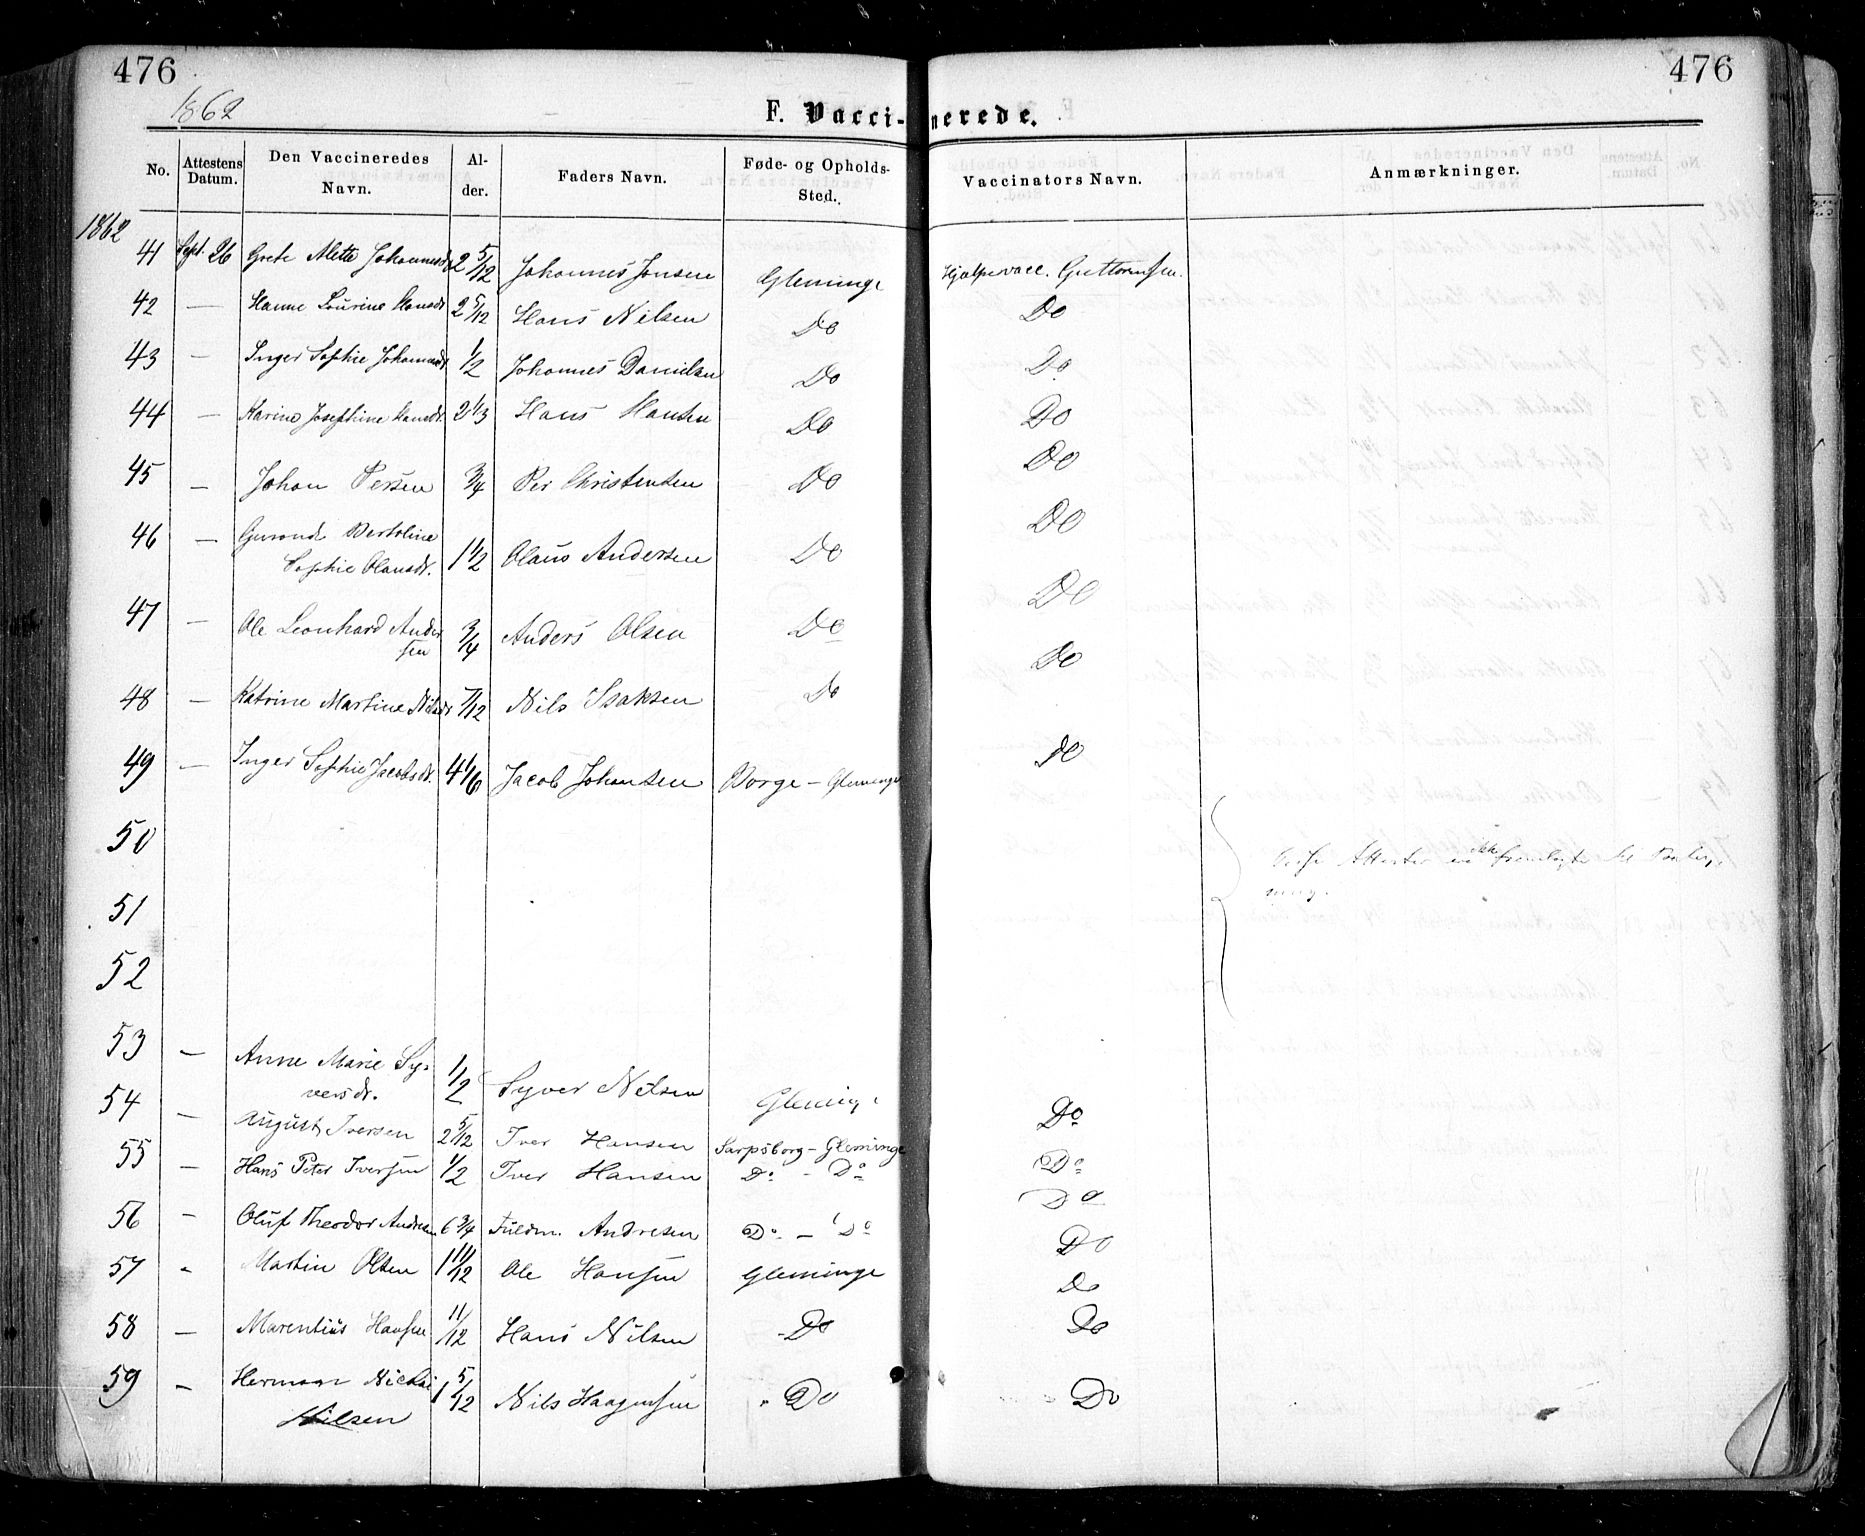 476 476
1862
F. Vaccinerede.
No. Attestens Datum. Den Vaccineredes Navn. Alder. Faders Navn. Føde- og Opholds-Sted. Vaccinators Navn. Anmærkninger.
1862
41 Sept. 26 Grete Mette Johannesdr 2 5/12 Johannes Jonsen Gleminge Hjælpevacc. Guttormsen.
42 — Hanne Lourine Hansdr 2 5/12 Hans Nilsen Do Do
43 — Inger Sophie Johannesdr 1/2 Johannes Danielsen Do Do
44 — Karine Josephine Hansdr. 2 1/3 Hans Hansen Do Do
45 — Johan Persen 3/4 Per Christensen Do Do
46 — Bertoline
Sophie Olausdr. 1 1/2 Olaus Andersen Do Do
47 — Ole Leonhard Ander
sen 3/4 Anders Olsen Do Do
48 — Katrine Martine Nilsdr 7/12 Nils Isaksen Do Do
49 — Inger Sophie Jacobsdr. 4 1/6 Jacob Johansen Borge - Gleminge Do
50
Attester ikke til
51
52
53 — Anne Marie Sy-
versdr. 1/2 Syver Nilsen Gleminge Do
54 — August Iversen 2 5/12 Iver Hansen Sarpsborg - Gleminge Do
55 — Hans Peter Iversen 1/2 Iver Hansen Do - Do Do
56 — Oluf Theodor Andresen 6 3/4 Fuldm. Andresen Do - Do Do
57 - Martin Olsen 1 11/12 Ole Hansen Gleminge Do
58 — Marentius Hansen 11/12 Hans Nilsen Do Do
59 — Herman Nicolai
Nilsen 1 5/12 Nils Haagensen Do Do